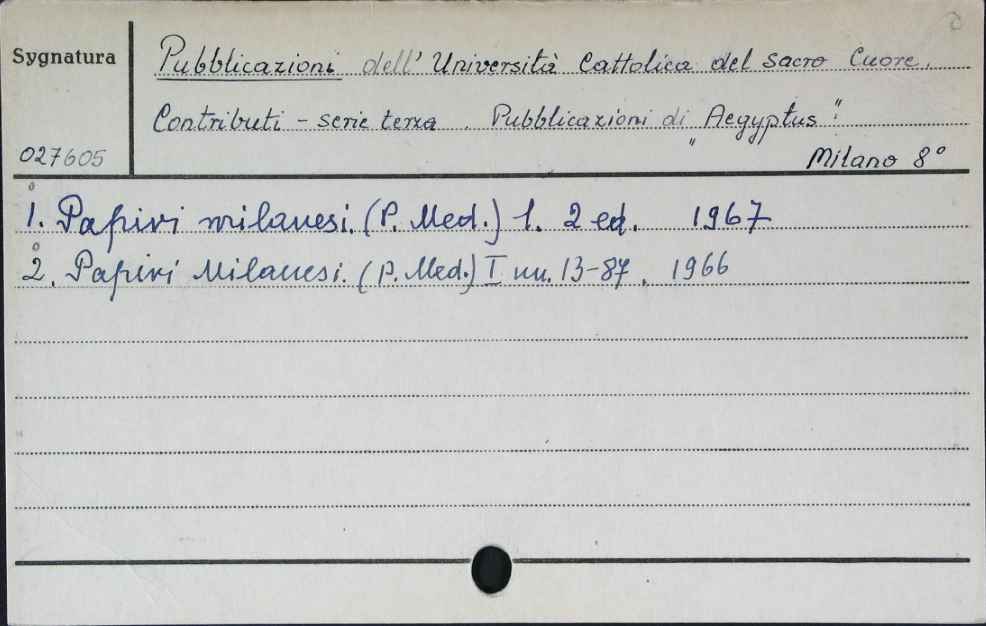 Sygnatura
Pubblicazioni dell' Università Cattolica del sacro Cuore.
Contributi - serie terza. Pubblicazioni di „Aegyptus"
027605
Milano 8°
1. Papiri milanesi. (P. Med.) 1. 2 ed. 1967
2. Papiri Milanesi. (P. Med.) I nn. 13-87. 1966